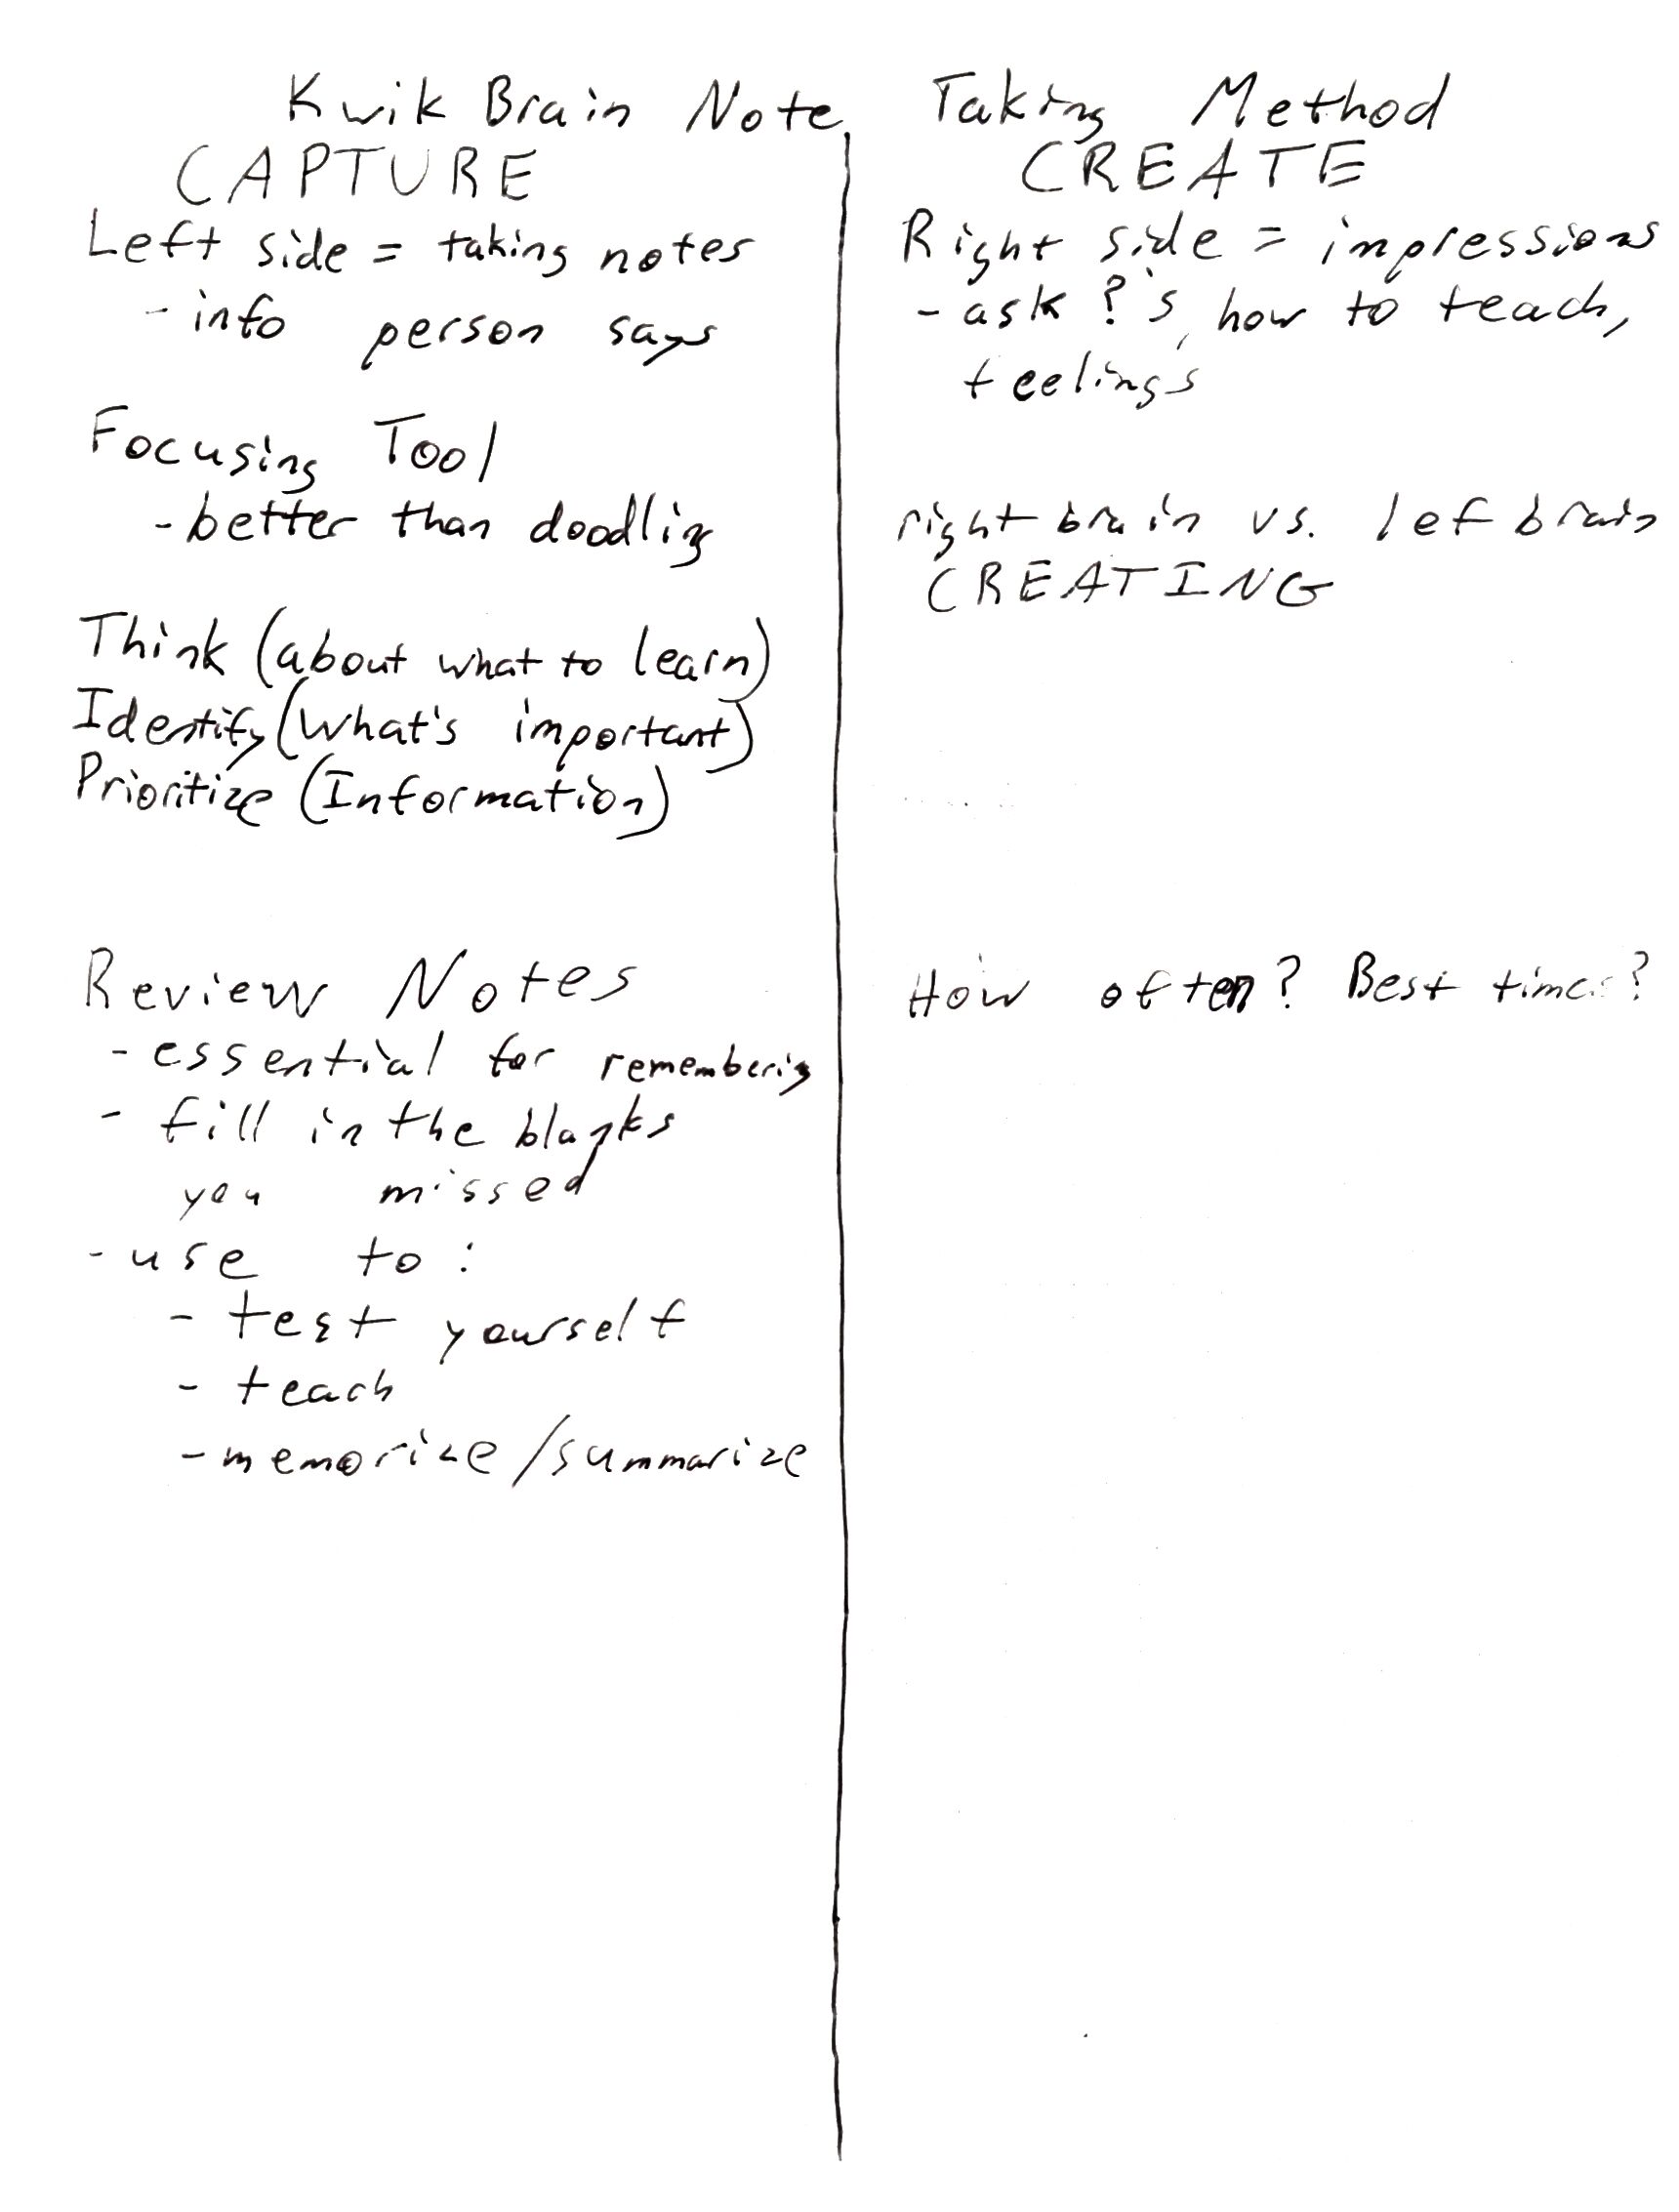 Kwik Brain Note Taking Method
CAPTURE
Left side = taking notes
- info person says
Focusing Tool
- better than doodling
Think (about what to learn)
Identify (what's important)
Prioritize (Information)
Review Notes
- essential for remembering
- fill in the blanks
you missed
- use to:
- test yourself
- teach
- memorize/summarize
CREATE
Right side = impressions
- ask ?'s, how to teach,
feelings
right brain vs. lef brain
CREATING
How often? Best times?